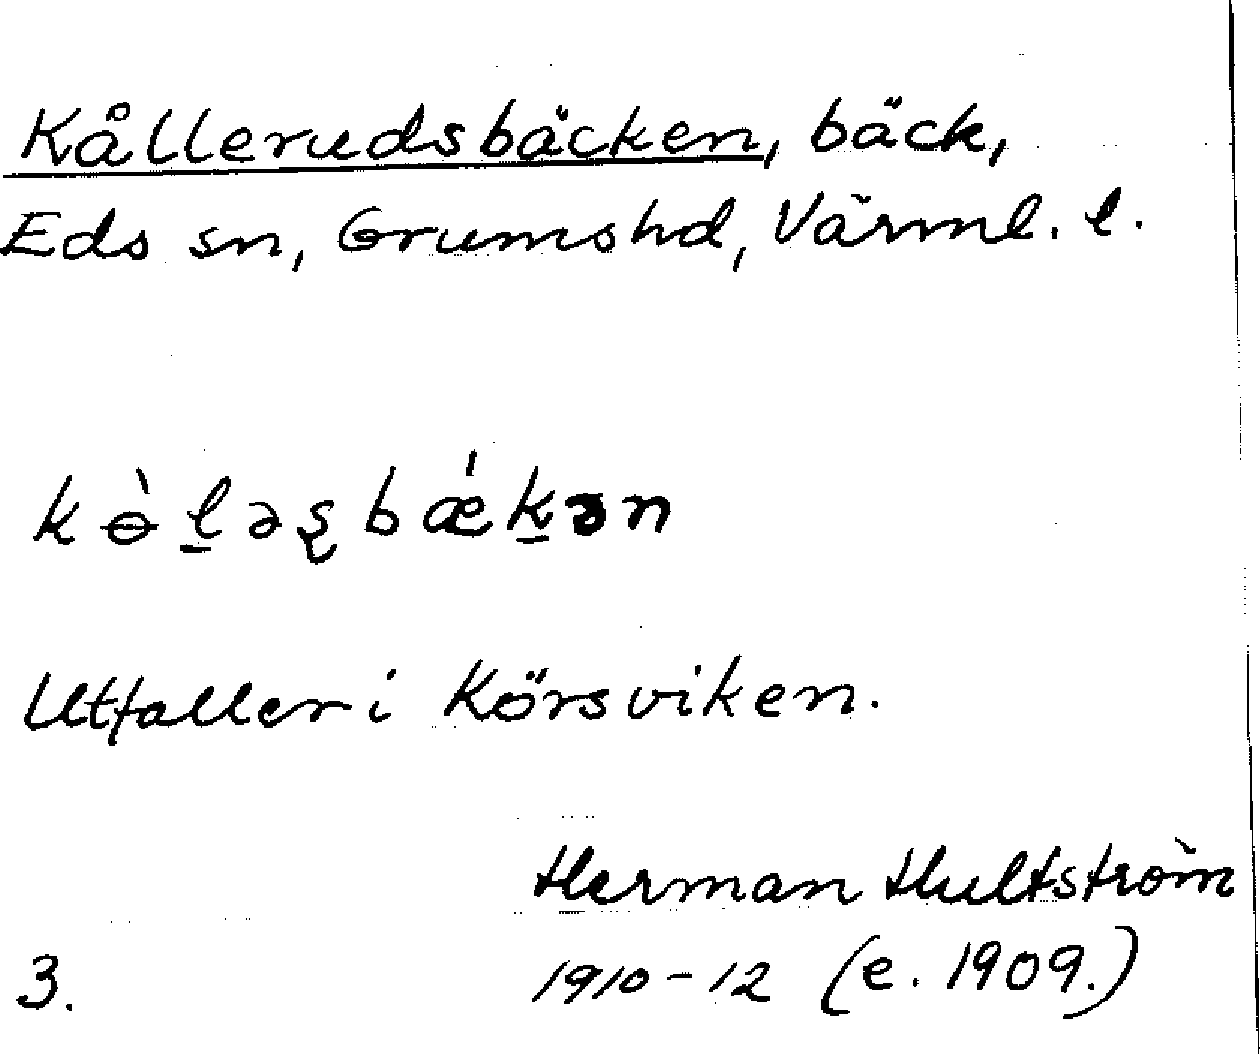 Kållerudsbäcken, bäck,
Eds sn, Grumshd, Värml. l.
kɵ̀l̠əʂbǽk̠ən
Utfaller i Körsviken.
Herman Hultström
1910-12 (e. 1909.)
3.